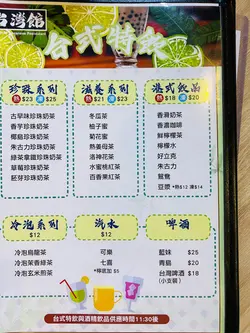 台灣館
台式特飲
珍珠系列
熱 $23 凍 $25
古早味珍珠奶茶
香芋珍珠奶茶
椰香珍珠奶茶
朱古力珍珠奶茶
綠茶拿鐵珍珠奶茶
草莓珍珠奶茶
胚芽珍珠奶茶
滋養系列
熱 $21 凍 $23
冬瓜茶
柚子蜜
菊花蜜
熱薑母茶
洛神花茶
水蜜桃紅茶
百香果紅茶
港式飲品
熱 $18 凍 $20
香滑奶茶
香濃咖啡
鮮檸檬茶
檸檬水
好立克
朱古力
鴛鴦
豆漿 *熱$12 凍$14
冷泡系列
$12
冷泡烏龍茶
冷泡茉香綠茶
冷泡玄米煎茶
汽水
$12
可樂
七喜
*檸底加 $5
啤酒
藍妹 $25
青島 $20
台灣啤酒 $18
(小支裝)
台式特飲與酒精飲品供應時間11:30後